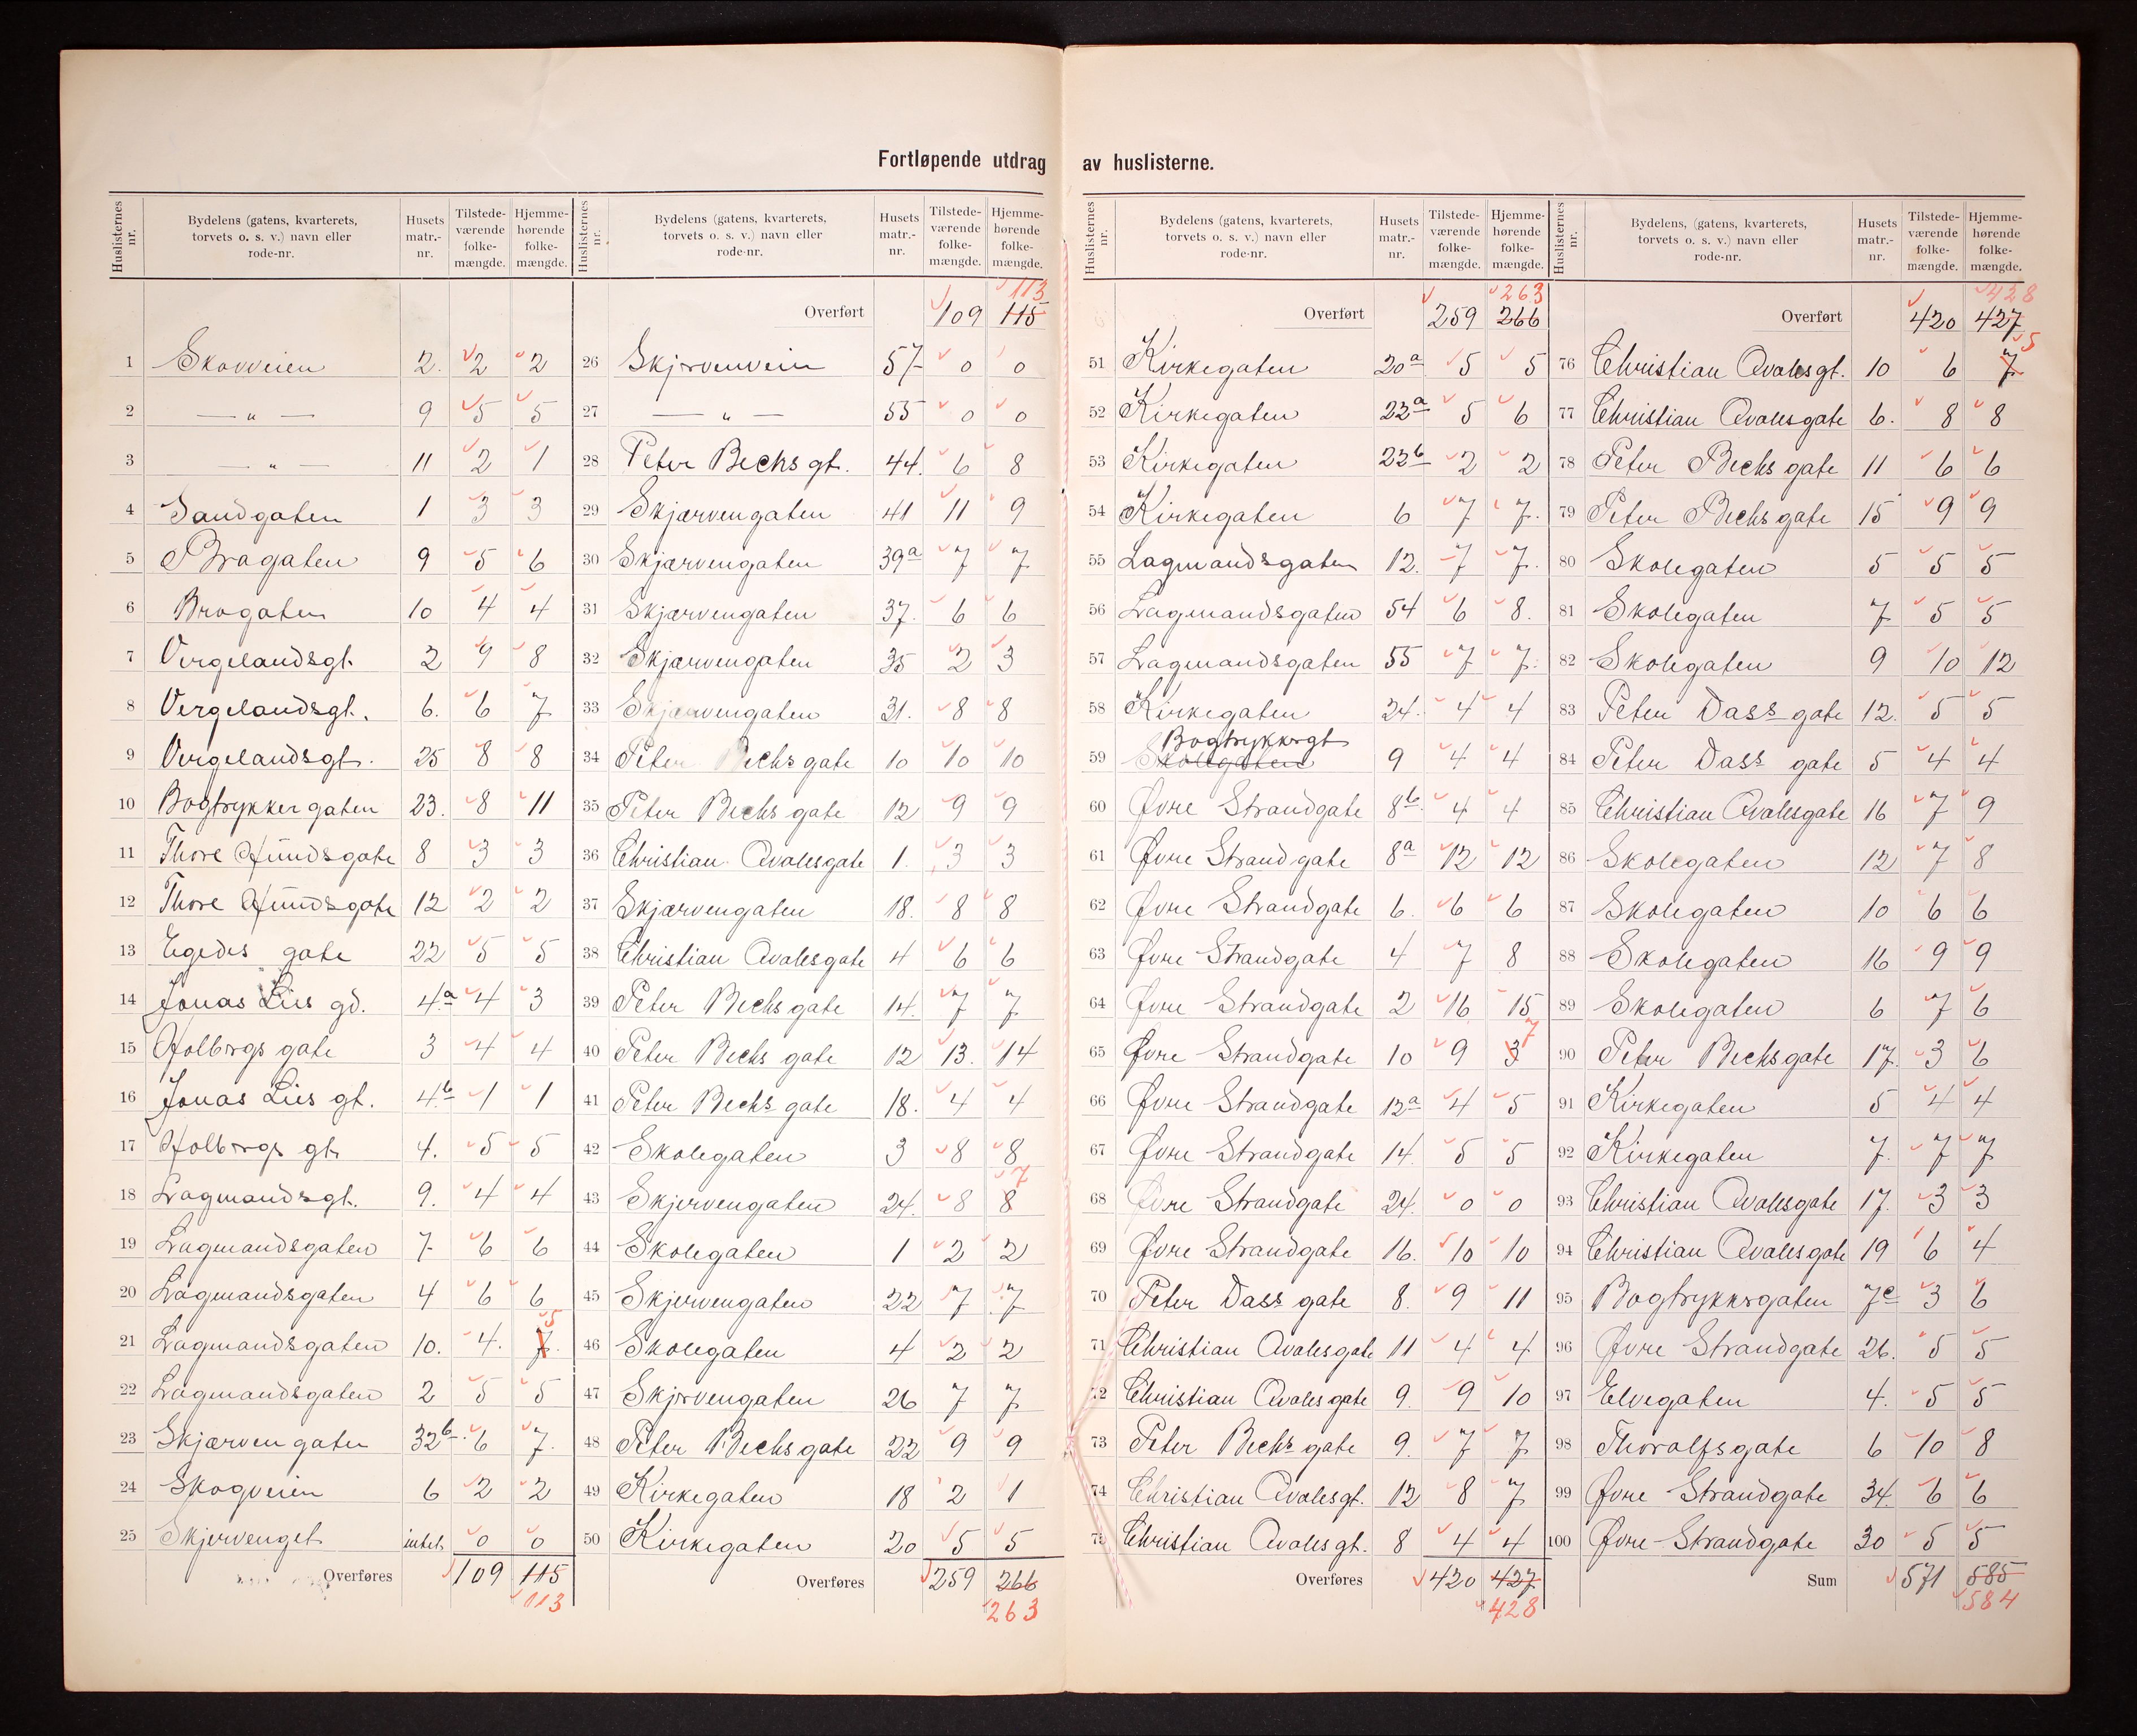 Fortløpende utdrag av huslisterne.
Huslisternes nr. Bydelens (gatens, kvarterets, torvets o. s. v.) navn eller rode-nr. Husets matr.-nr. Tilstede-værende folke-mængde. Hjemme-hørende folke-mængde.
1 Skovveien 2. 2 2
2 — " — 9 5 5
3 — " — 11 2 1
4 Sandgaten 1 3 3
5 Bragaten 9 5 6
6 Bragaten 10 4 4
7 Vergelandsgt. 2 9 8
8 Vergelandsgt. 6. 6 7
9 Vergelandsgt. 25 8 8
10 Bogtrykkergaten 23. 8 11
11 Thore Hundsgate 8 3 3
12 Thore Hundsgate 12 2 2
13 Egedes gate 22 5 5
14 Jonas Lies gd. 4a 4 3
15 Holbergs gate 3 4 4
16 Jonas Lies gt. 4b 1 1
17 Holbergs gt. 4. 5 5
18 Lagmandsgt. 9. 4 4
19 Lagmandsgaten 7 6 6
20 Lagmandsgaten 4 6 6
21 Lagmandsgaten 10. 4. 7. 5
22 Lagmandsgaten 2 5 5
23 Skjærvengaten 32b 6 7.
24 Skogveien 6 2 2
25 Skjervenget intet 0 0
Overføres 109 115
113
Huslisternes nr. Bydelens (gatens, kvarterets, torvets o. s. v.) navn eller rode-nr. Husets matr.-nr. Tilstede-værende folke-mængde. Hjemme-hørende folke-mængde.
113
Overført 109 115
26 Skjervenvein 57 0 0
27 — " — 55 0 0
28 Peter Bechs gt. 44. 6 8
29 Skjærvengaten 41 11 9
30 Skjærvengaten 39a 7 7
31 Skjærvengaten 37. 6 6
32 Skjærvengaten 35 2 3
33 Skjærvengaten 31. 8 8
34 Peter Bechs gate 10 10 10
35 Peter Bechs gate 12 9 9
36 Christian Qvalesgate 1. 3 3
37 Skjærvengaten 18. 8 8
38 Christian Qvalesgate 4 6 6
39 Peter Bechs gate 14. 7 7
40 Peter Bechs gate 12 13. 14
41 Peter Bechs gate 18. 4 4
42 Skolegaten 3 8 8
43 Skjervengaten 24. 8 8 7
44 Skolegaten 1 2 2
45 Skjervengaten 22 7 7
46 Skolegaten 4 2 2
47 Skjervengaten 26 7 7
48 Peter Bechs gate 22 9 9
49 Kirkegaten 18 2 1
50 Kirkegaten 20 5 5
Overføres 259 266
263
Huslisternes nr. Bydelens (gatens, kvarterets, torvets o. s. v.) navn eller rode-nr. Husets matr.-nr. Tilstede-værende folke-mængde. Hjemme-hørende folke-mængde.
263
Overført 259 266
51 Kirkegaten 20a 5 5
52 Kirkegaten 22a 5 6
53 Kirkegaten 22b 2 2
54 Kirkegaten 6 7 7.
55 Lagmandsgaten 12. 7 7.
56 Lagmandsgaten 54 6 8.
57 Lagmandsgaten 55 7 7.
58 Kirkegaten 24. 4 4
Bogtrykkergt
59 Skolegaten 9 4 4
60 Øvre Strandgate 8b. 4 4
61 Øvre Strandgate 8a 12 12
62 Øvre Strandgate 6. 6 6
63 Øvre Strandgate 4 7 8
64 Øvre Strandgate 2 16 15
65 Øvre Strandgate 10 9 3 7
66 Øvre Strandgate 12a 4 5
67 Øvre Strandgate 14. 5 5
68 Øvre Strandgate 24. 0 0
69 Øvre Strandgate 16. 10 10
70 Peter Dass gate 8. 9 11
71 Christian Qvalesgate 11 4 4
72 Christian Qvalesgate 9. 9 10
73 Peter Bechs gate 9. 7 7
74 Christian Qvalesgt. 12 8 7
75 Christian Qvalesgt. 8 4 4
Overføres 420 427
428
Huslisternes nr. Bydelens, (gatens, kvarterets, torvets o. s. v.) navn eller rode-nr. Husets matr.-nr. Tilstede-værende folke-mængde. Hjemme-hørende folke-mængde.
428
Overført 420 427
76 Christian Qvalesgt. 10 6 7 5
77 Christian Qvalesgate 6. 8 8
78 Peter Bechs gate 11 6 6
79 Peter Bechs gate 15 9 9
80 Skolegaten 5 5 5
81 Skolegaten 7 5 5
82 Skolegaten 9 10 12
83 Peter Dass gate 12. 5 5
84 Peter Dass gate 5 4 4
85 Christian Qvalesgate 16 7 9
86 Skolegaten 12 7 8
87 Skolegaten 10 6 6
88 Skolegaten 16 9 9
89 Skolegaten 6 7 6
90 Peter Bechsgate 17. 3 6
91 Kirkegaten 5 4 4
92 Kirkegaten 7. 7 7
93 Christian Qvalesgate 17. 3 3
94 Christian Qvalesgate 19 6 4
95 Bogtrykkergaten 7c 3 6
96 Øvre Strandgate 26. 5 5
97 Elvegaten 4. 5 5
98 Thoralfsgate 6 10 8
99 Øvre Strandgate 34 6 6
100 Øvre Strandgate 30 5 5
Sum 571 585
584